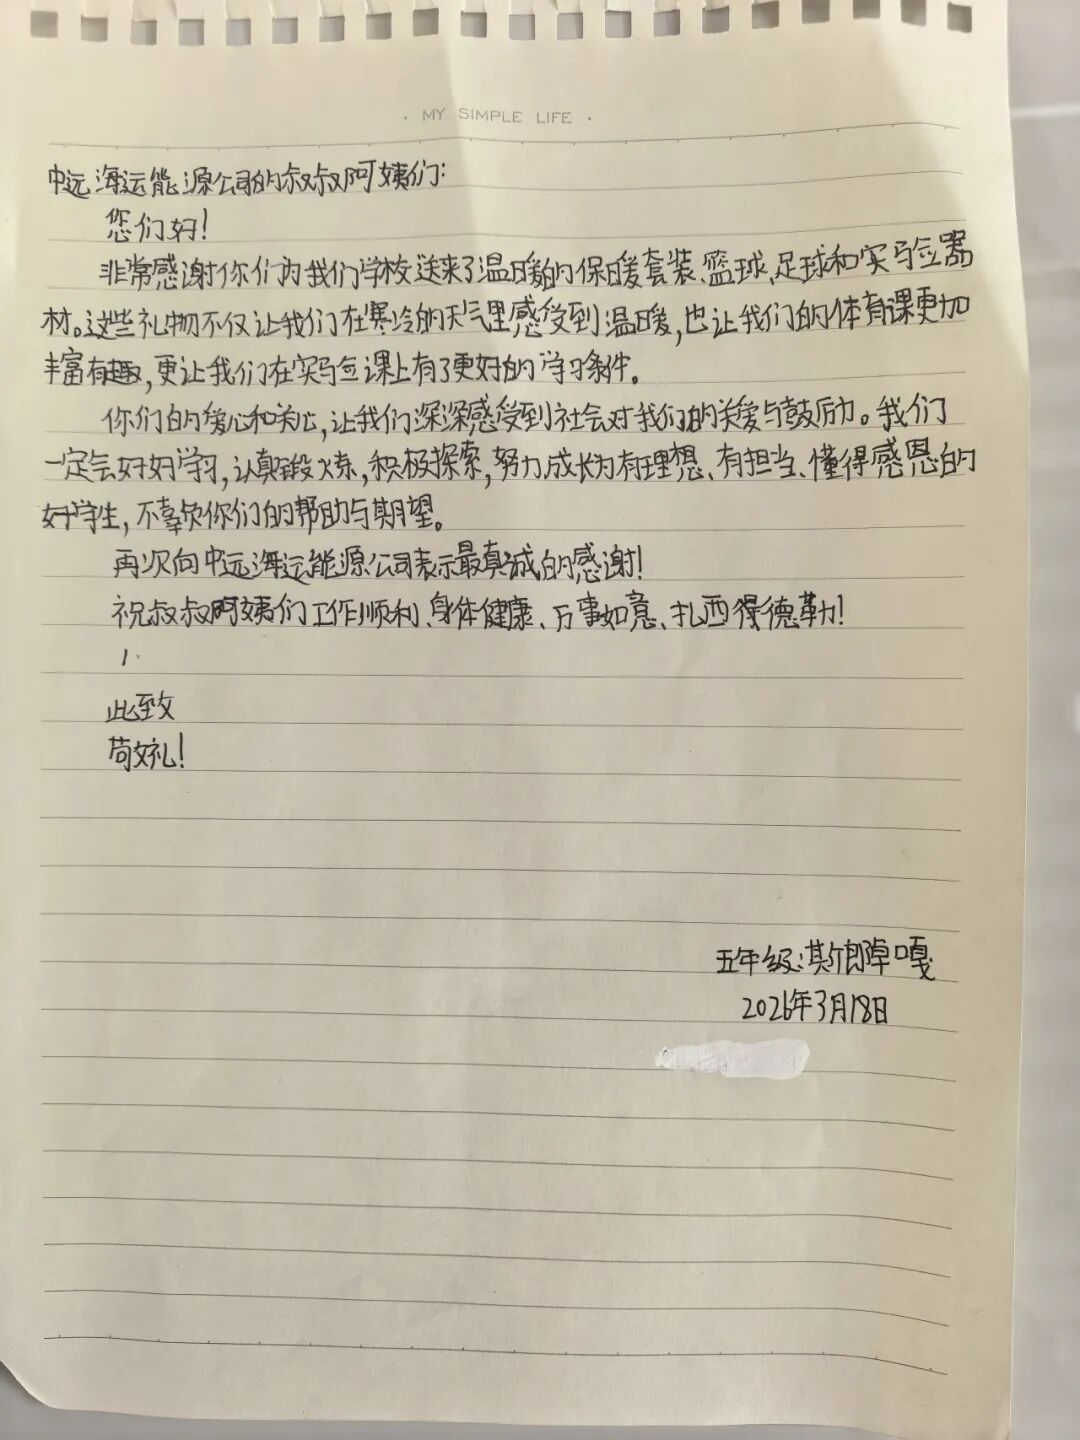 · MY SIMPLE LIFE ·
中远海运能源公司的叔叔阿姨们:
您们好!
非常感谢你们为我们学校送来了温暖的保暖套装、篮球、足球和实验器
材。这些礼物不仅让我们在寒冷的天气里感受到温暖,也让我们的体育课更加
丰富有趣,更让我们在实验课上有了更好的学习条件。
你们的爱心和关心,让我们深深感受到社会对我们的关爱与鼓励。我们
一定会好好学习,认真锻炼,积极探索,努力成长为有理想、有担当、懂得感恩的
好学生,不辜负你们的帮助与期望。
再次向中远海运能源公司表示最真诚的感谢!
祝叔叔阿姨们工作顺利、身体健康、万事如意、扎西得德勒!
此致
敬礼!
五年级:郎卓嘎
2026年3月18日